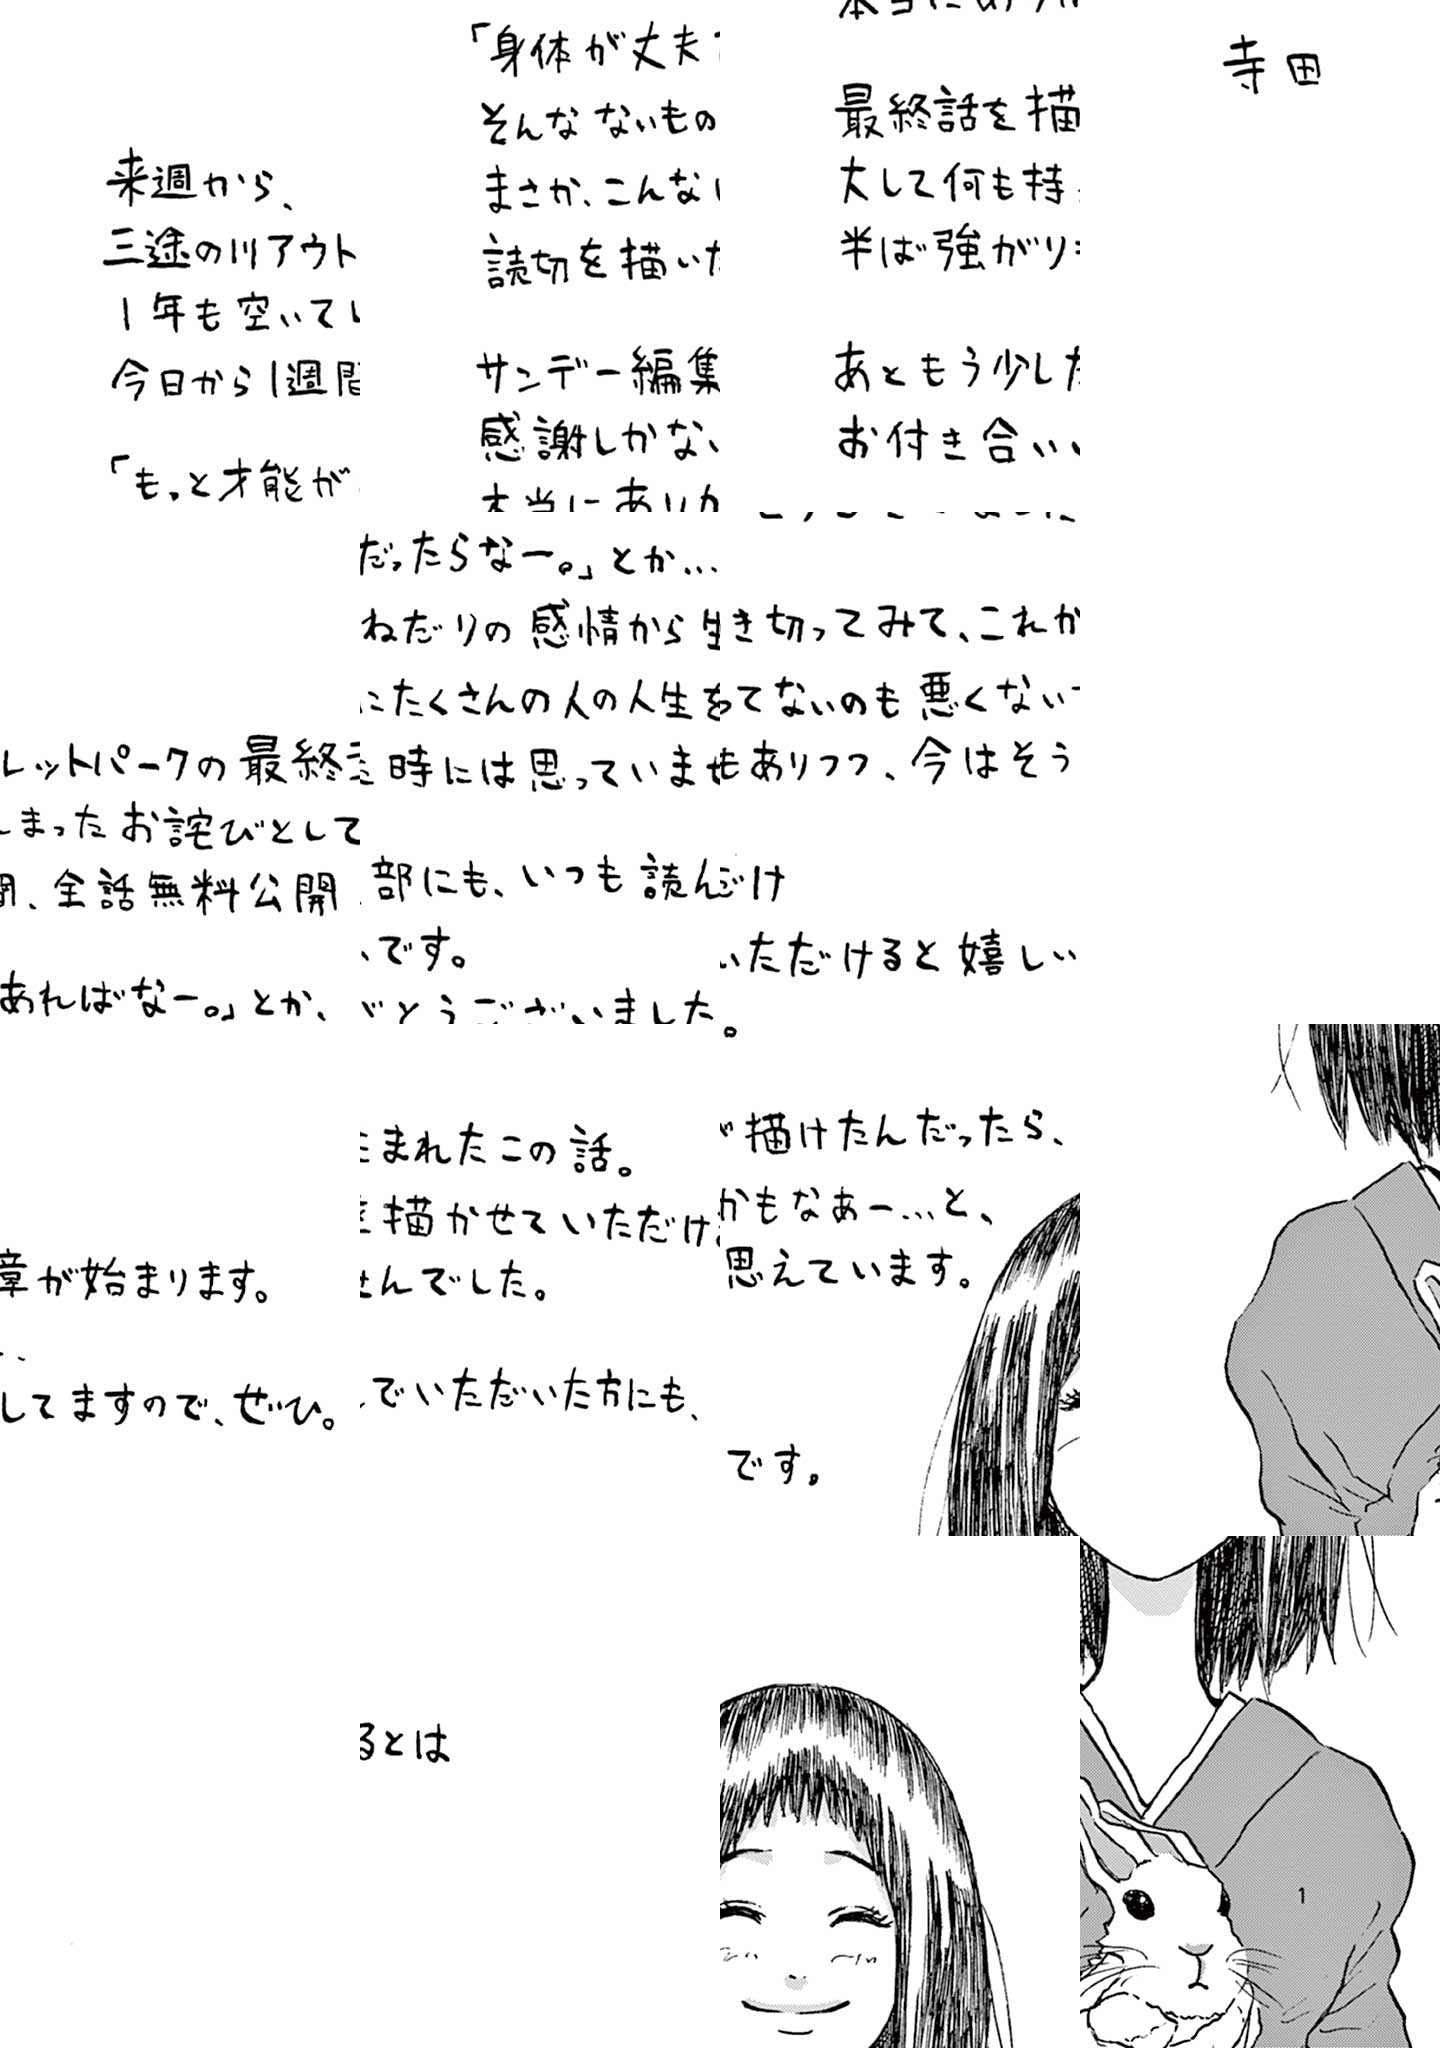 来週から、
三途の川アウト
1年も空いて
今日から1週間
「もっと才能が
「身体が丈夫
そんなないもの
まさか、こんな
読切を描いた
サンデー編集
感謝しかない
本当にありが
最終話を描
大して何も持
半ば強がり
あともう少し
お付き合い
寺田
レットパークの最終
しまったお詫びとして
間、全話無料公開
あればなー。」とか、
だったらなー。」とか…
ねだりの感情から生
にたくさんの人の人生を
時には思っていませ
部にも、いつも読ん
いです。
がとうございました
き切ってみて、これが
ってないのも悪くない
もありつつ、今はそう
だけ
いただけると嬉しい
章が始まります。
してますので、ぜひ。
まれたこの話。
を描かせていただけ
せんでした。
でいただいた方にも、
描けたんだったら、
かもなあー…と、
思えています。
です。
るとは
1